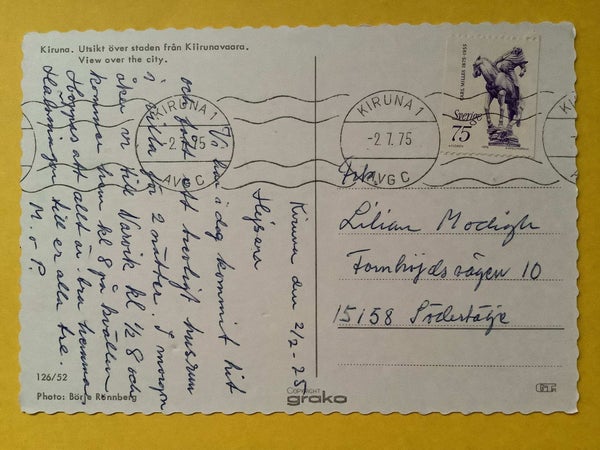 Kiruna. Utsikt över staden från Kiirunavaara.
View over the city.
KIRUNA 1
- 2.7.75
AVG C
KIRUNA 1
- 2.7.75
AVG C
CARL MILLES 1875-1955
Sverige
75
Kiruna den 2/7-75
Hejsan
Vi har i dag kommit hit
och fått ett trevligt husrum
i villa för 2 nätter. I morgon
åker vi till Narvik kl 1/2 8 och
kommer hem kl 8 på kvällen
Hoppas att allt är bra hemma
Hälsningar till er alla tre.
M. o P.
Lilian Modigh
Fornhöjdsvägen 10
15158 Södertälje
126/52
Photo: Börje Rönnberg
COPYRIGHT
grako